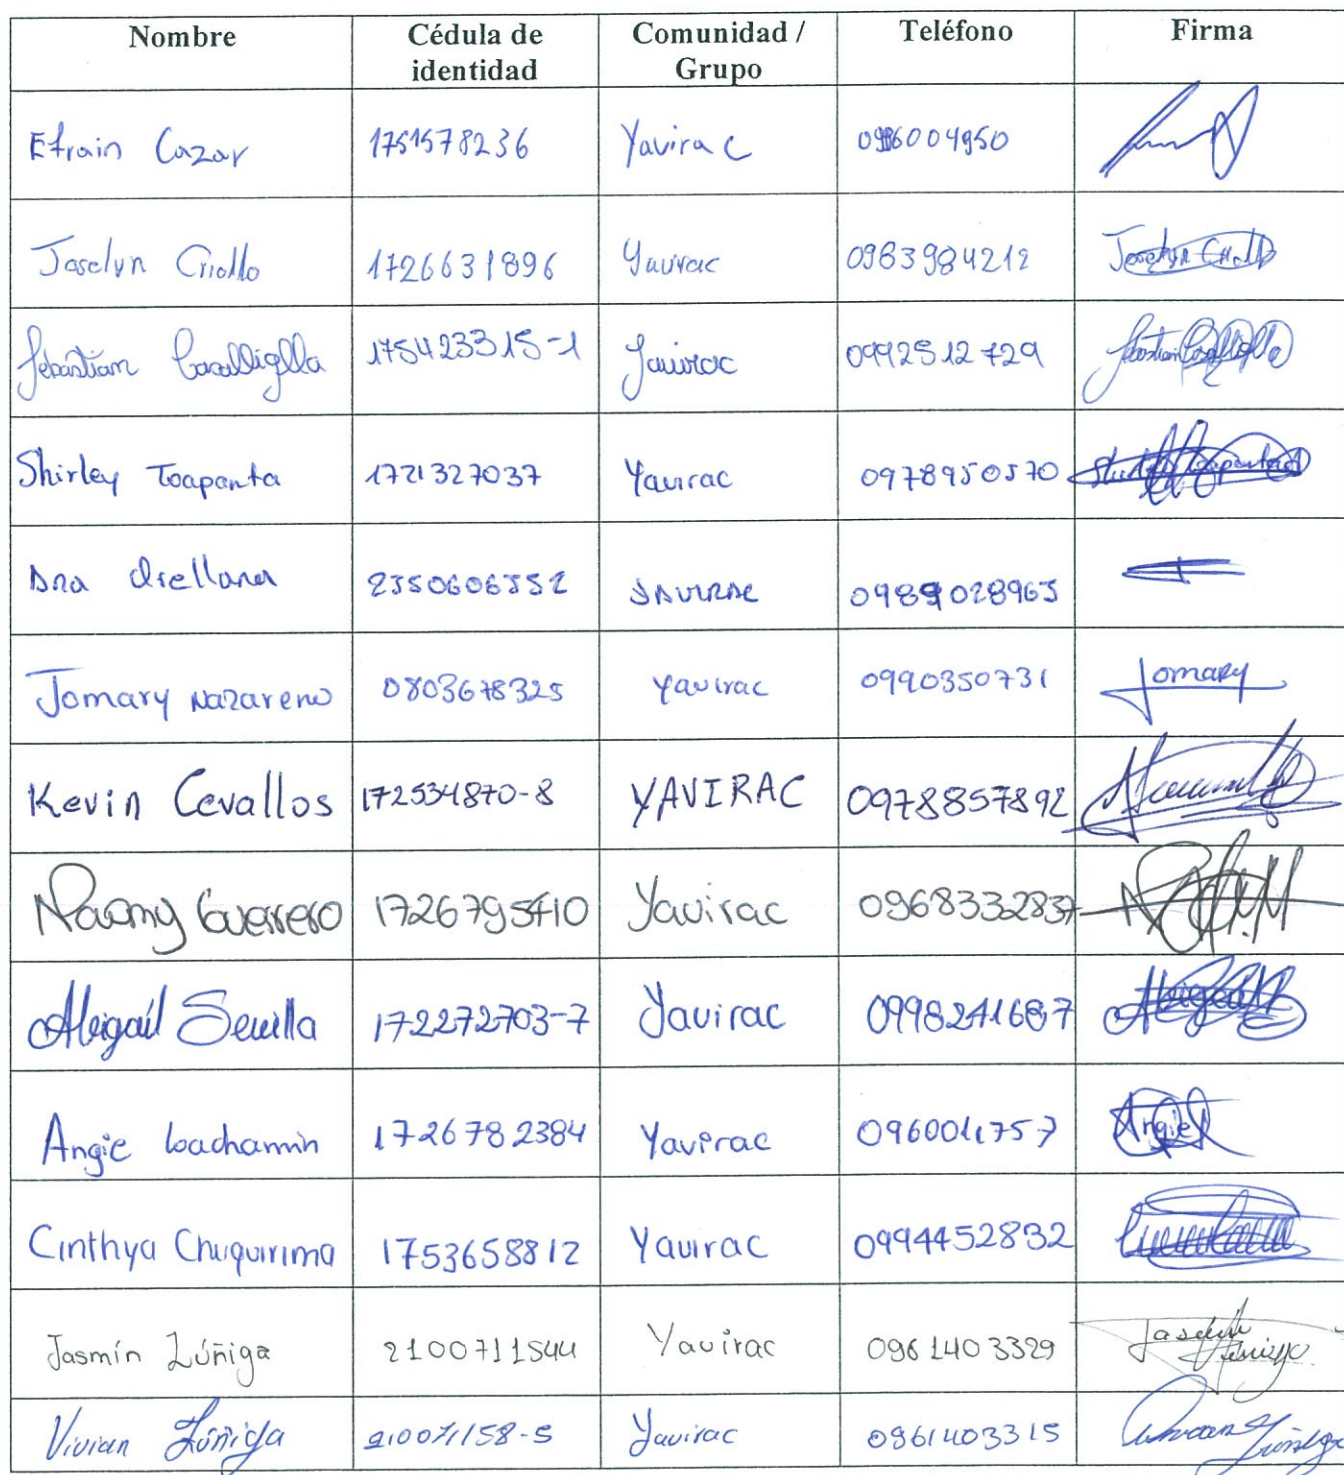 Nombre Cédula de identidad Comunidad / Grupo Teléfono Firma
Efrain Cazar 1751578236 Yavirac 0986004950
Joselyn Criollo 1726631896 Yavirac 0983984212 Joselyn Criollo
Sebastian Casalliglla 175423315-1 Yavirac 0992512729
Shirley Toapanta 1721327037 Yavirac 0978950570 Shirley Toapanta
Ana Orellana 2350606552 YAVIRAC 0989028965
Jomary Nazareno 0803678325 Yavirac 0990350731 Jomary
Kevin Cevallos 172534870-8 YAVIRAC 0978857892
Naomy Guerrero 1726795410 Yavirac 0968332837
Abigail Sevilla 172272703-7 Yavirac 0998241687 Abigail
Angie Loachamin 1726782384 Yavirac 0960011757 Angie
Cinthya Chuquirima 1753658812 Yavirac 0994452832
Jasmín Zúñiga 2100711544 Yavirac 0961403329
Vivian Zúñiga 210071158-5 Yavirac 0961403315 Vivian Zúñiga